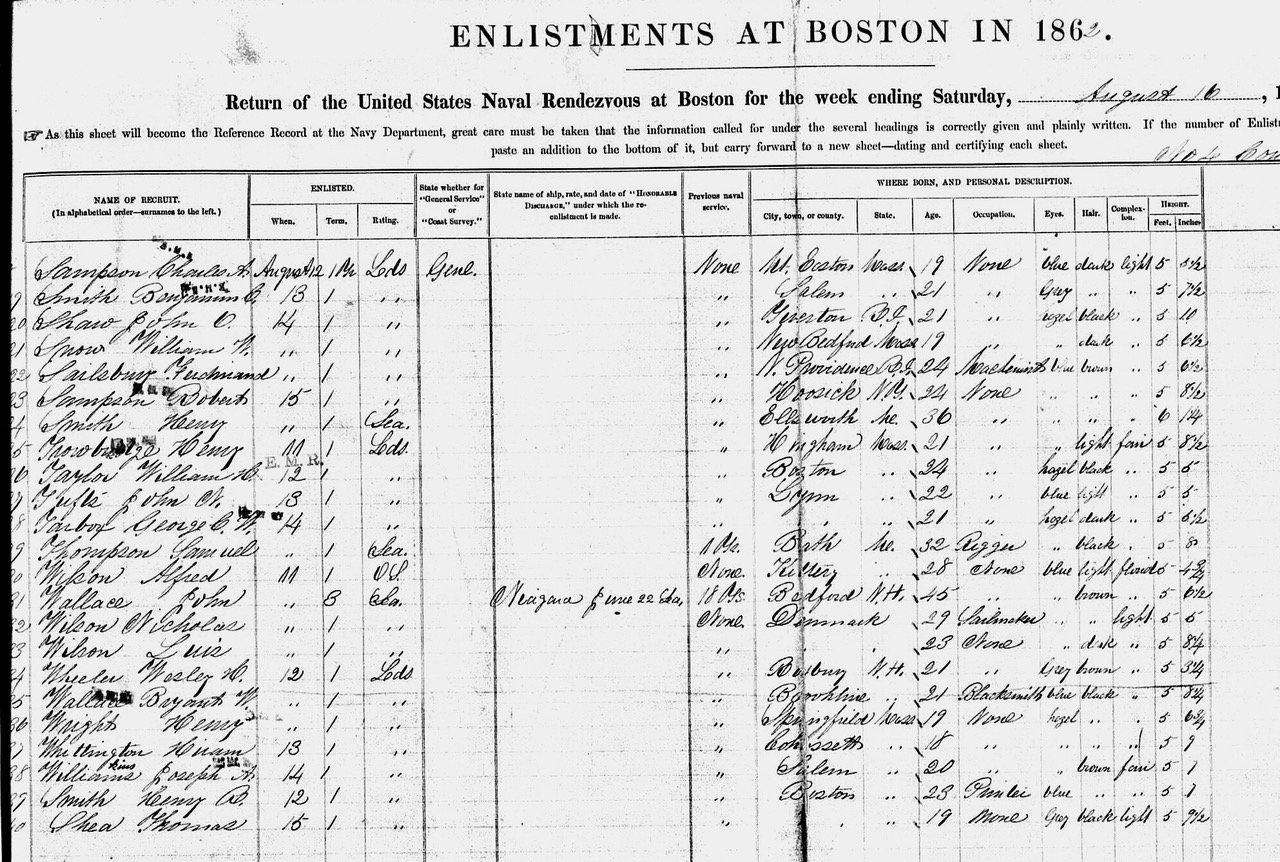 ENLISTMENTS AT BOSTON IN 1862.
Return of the United States Naval Rendezvous at Boston for the week ending Saturday, August 16, 1
As this sheet will become the Reference Record at the Navy Department, great care must be taken that the information called for under the several headings is correctly given and plainly written. If the number of Enlist
paste an addition to the bottom of it, but carry forward to a new sheet—dating and certifying each sheet.
NAME OF RECRUIT. (In alphabetical order—surnames to the left.) ENLISTED. When. Term. Rating. State whether for "General Service" or "Coast Survey." State name of ship, rate, and date of "Honorable Discharge," under which the re-enlistment is made. Previous naval service. WHERE BORN, AND PERSONAL DESCRIPTION. City, town, or county. State. Age. Occupation. Eyes. Hair. Complexion. Height. Feet. Inches.
Sampson Charles A. August 12 1 Lds Genl. None Boston Mass. 19 None blue dark light 5 5½
Smith Benjamin 13 1 ,, ,, Salem ,, 21 ,, Grey ,, ,, 5 7½
Shaw John C. 14 1 ,, ,, Tiverton R.I. 21 ,, hazel black ,, 5 10
Snow William ,, 1 ,, ,, New Bedford Mass 19 ,, ,, dark ,, 5 6½
Sarlsbury Ferdinand ,, 1 ,, ,, N. Providence R.I. 24 Machinist blue brown ,, 5 6½
Sampson Robert 15 1 ,, ,, Hoosick N.Y. 24 None ,, ,, ,, 5 8½
Smith Henry ,, 1 Sea. ,, Ellsworth Me. 36 ,, ,, ,, ,, 6 1¼
Trowbridge Henry 11 1 Lds. ,, Hingham Mass. 21 ,, ,, light fair 5 8½
Taylor William H. E. M. R. 12 1 ,, ,, Boston ,, 24 ,, hazel black ,, 5 5
Tufts John N. 13 1 ,, ,, Lynn ,, 22 ,, blue light ,, 5 5
Tarbox George C. W. 14 1 ,, ,, ,, ,, 21 ,, hazel dark ,, 5 5½
Thompson Samuel ,, 1 Sea. Bath Me. 32 Rigger ,, black ,, 5 8
Wilson Alfred 11 1 O.S. None. Kittery ,, 28 None blue light florid 5
Wallace John ,, 3 Sea. Niagara June 22 Sea. 18 Bedford N.H. 45 ,, ,, brown ,, 5 6½
Wilson Nicholas ,, 1 ,, None. Denmark 29 Sailmaker ,, ,, light 5 5
Wilson Luis ,, 1 ,, ,, ,, 23 None ,, dark ,, 5 8¼
Wheeler Wesley 12 1 Lds ,, N.H. 21 ,, Grey brown ,, 5
Wallace Bryant W. ,, 1 ,, ,, Brookline ,, 21 Blacksmith blue black ,, 5
Wright Henry ,, 1 ,, ,, Springfield Mass 19 None hazel ,, ,, 5
Whittington Hiram 13 1 ,, ,, Cohassett ,, 18 ,, ,, ,, ,, 5 9
Williams kins Joseph A. 14 1 ,, ,, Salem ,, 20 ,, ,, brown fair 5
Smith Henry B. 12 1 ,, ,, Boston ,, 23 Printer blue ,, ,, 5
Shea Thomas 15 1 ,, ,, ,, ,, 19 None Grey black light 5 9½